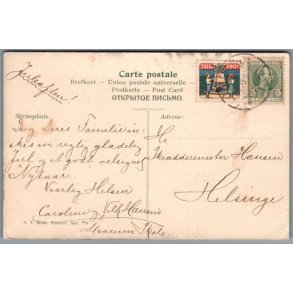 Juleaften!
Carte postale
Brefkort — Union postale universelle
Postkarte — Post Card
ОТКРЫТОЕ ПИСЬМО.
JUL 1905
DANMARK
Skriveplads:
Adresse:
Dig Deres Familie øn-
skes en rigtig glædelig
Jul og et godt velsignet
Nytaar
Venlig Hilsen
Caroline og Hansen
Maarum Skole.
Hr
Skræddermester Hansen
Helsinge